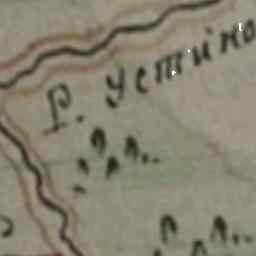 Р. Устіно